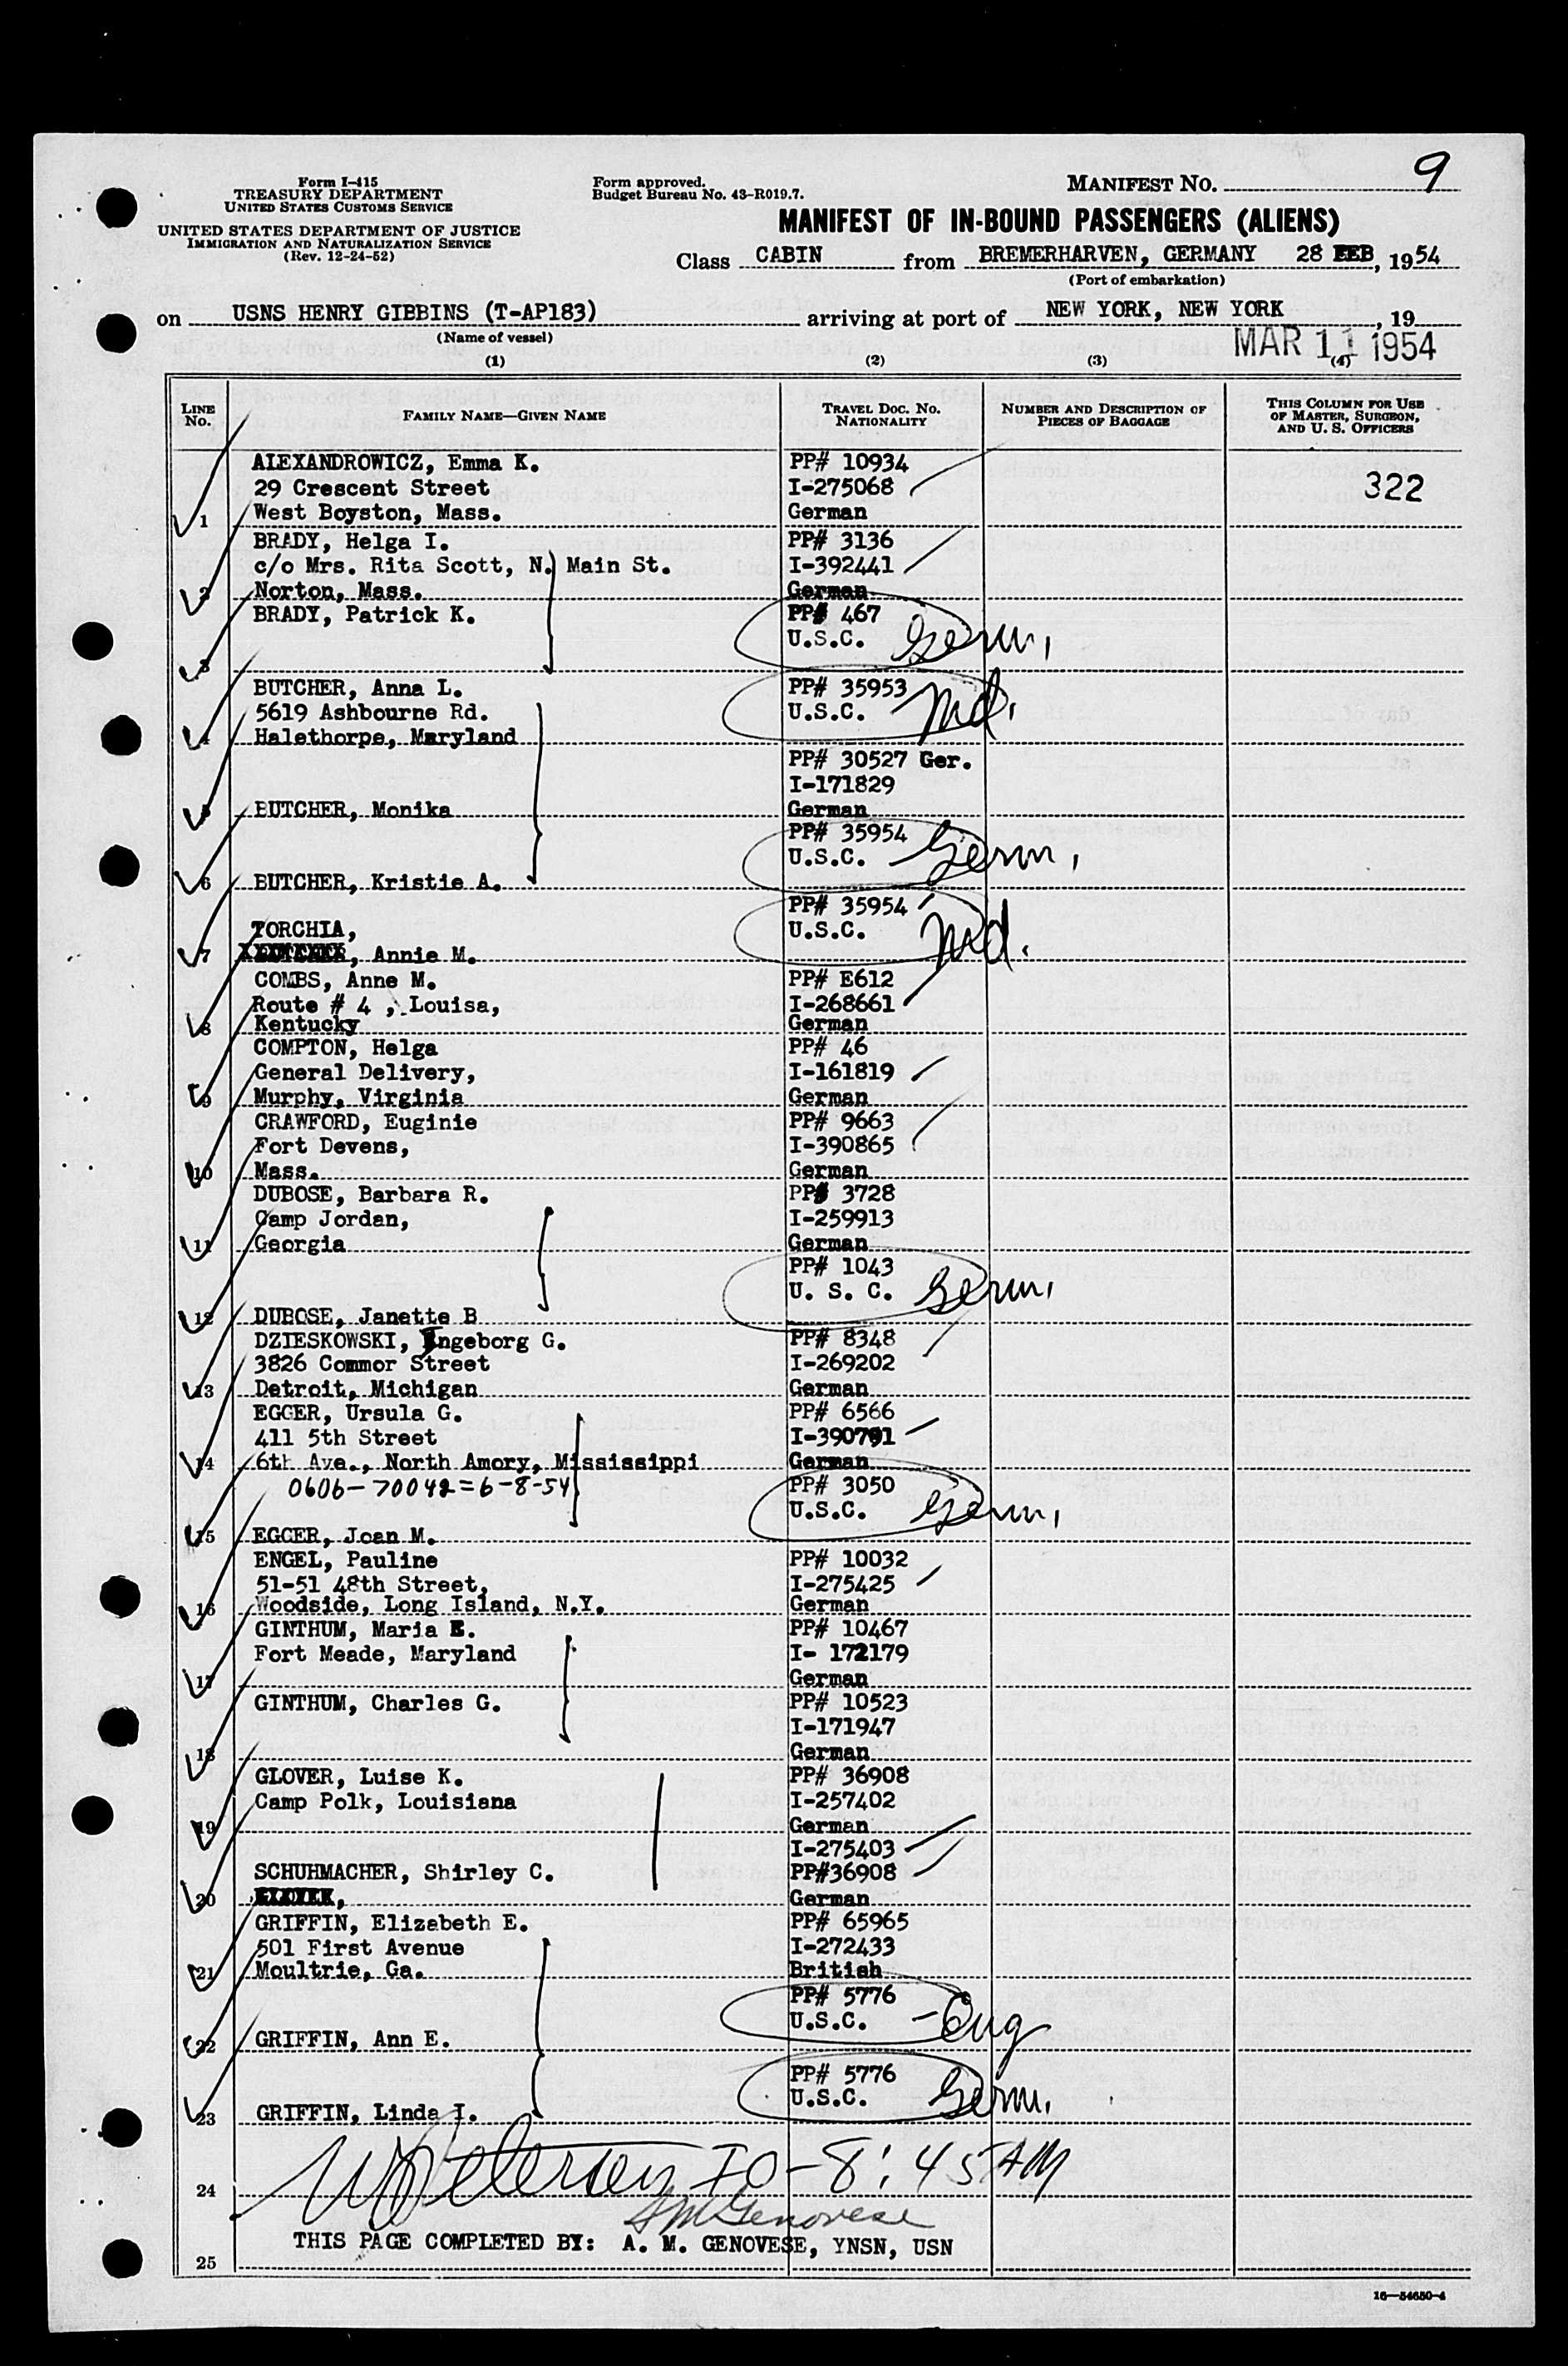 9
Form I-415
TREASURY DEPARTMENT
UNITED STATES CUSTOMS SERVICE
UNITED STATES DEPARTMENT OF JUSTICE
IMMIGRATION AND NATURALIZATION SERVICE
(Rev. 12-24-52)
Form approved.
Budget Bureau No. 43-R019.7.
MANIFEST NO.
MANIFEST OF IN-BOUND PASSENGERS (ALIENS)
Class CABIN from BREMERHARVEN, GERMANY 28 FEB, 1954
(Port of embarkation)
on USNS HENRY GIBBINS (T-AP183) arriving at port of NEW YORK, NEW YORK, 19
(Name of vessel)
MAR 11 1954
(1) (2) (3) (4)
LINE No. FAMILY NAME—GIVEN NAME TRAVEL DOC. NO. NATIONALITY NUMBER AND DESCRIPTION OF PIECES OF BAGGAGE THIS COLUMN FOR USE OF MASTER, SURGEON, AND U. S. OFFICERS
ALEXANDROWICZ, Emma K. PP# 10934
29 Crescent Street I-275068 322
1 West Boyston, Mass. German
BRADY, Helga I. PP# 3136
c/o Mrs. Rita Scott, N. Main St. I-392441
2 Norton, Mass. German
BRADY, Patrick K. PP# 467
U.S.C. Germ.
3
BUTCHER, Anna L. PP# 35953
5619 Ashbourne Rd. U.S.C. Md.
4 Halethorpe, Maryland
PP# 30527 Ger.
I-171829
5 BUTCHER, Monika German
PP# 35954
U.S.C. Germ.
6 BUTCHER, Kristie A.
PP# 35954
TORCHIA, U.S.C. Md.
7 , Annie M.
COMBS, Anne M. PP# E612
Route # 4 , Louisa, I-268661
8 Kentucky German
COMPTON, Helga PP# 46
General Delivery, I-161819
9 Murphy, Virginia German
CRAWFORD, Euginie PP# 9663
Fort Devens, I-390865
10 Mass. German
DUBOSE, Barbara R. PP# 3728
Camp Jordan, I-259913
11 Georgia German
PP# 1043
U. S. C. Germ.
12 DUBOSE, Janette B
DZIESKOWSKI, Ingeborg G. PP# 8348
3826 Commor Street I-269202
13 Detroit, Michigan German
EGGER, Ursula G. PP# 6566
411 5th Street I-390791
14 6th Ave., North Amory, Mississippi German
0606-70042=6-8-54 PP# 3050
U.S.C. Germ.
15 EGGER, Joan M.
ENGEL, Pauline PP# 10032
51-51 48th Street, I-275425
16 Woodside, Long Island, N.Y. German
GINTHUM, Maria E. PP# 10467
Fort Meade, Maryland I- 172179
17 German
GINTHUM, Charles G. PP# 10523
I-171947
18 German
GLOVER, Luise K. PP# 36908
Camp Polk, Louisiana I-257402
19 German
I-275403
SCHUHMACHER, Shirley C. PP#36908
20 GLOVER, German
GRIFFIN, Elizabeth E. PP# 65965
501 First Avenue I-272433
21 Moultrie, Ga. British
PP# 5776
U.S.C. -Eng
22 GRIFFIN, Ann E.
PP# 5776
U.S.C. Germ.
23 GRIFFIN, Linda I.
Petersen IO-8:45 AM
24
AM Genovese
THIS PAGE COMPLETED BY: A. M. GENOVESE, YNSN, USN
25
16—54650-4